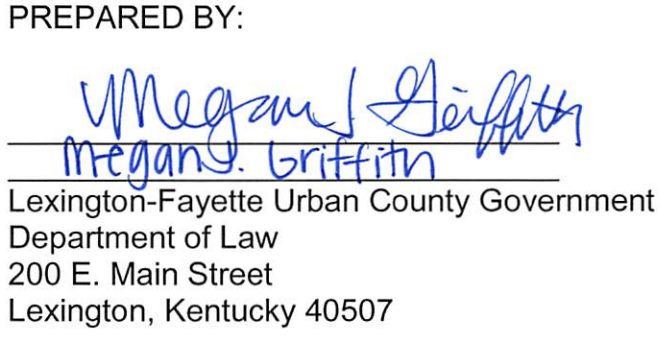 PREPARED BY:
Megan J Griffith
Megan J. Griffith
Lexington-Fayette Urban County Government
Department of Law
200 E. Main Street
Lexington, Kentucky 40507